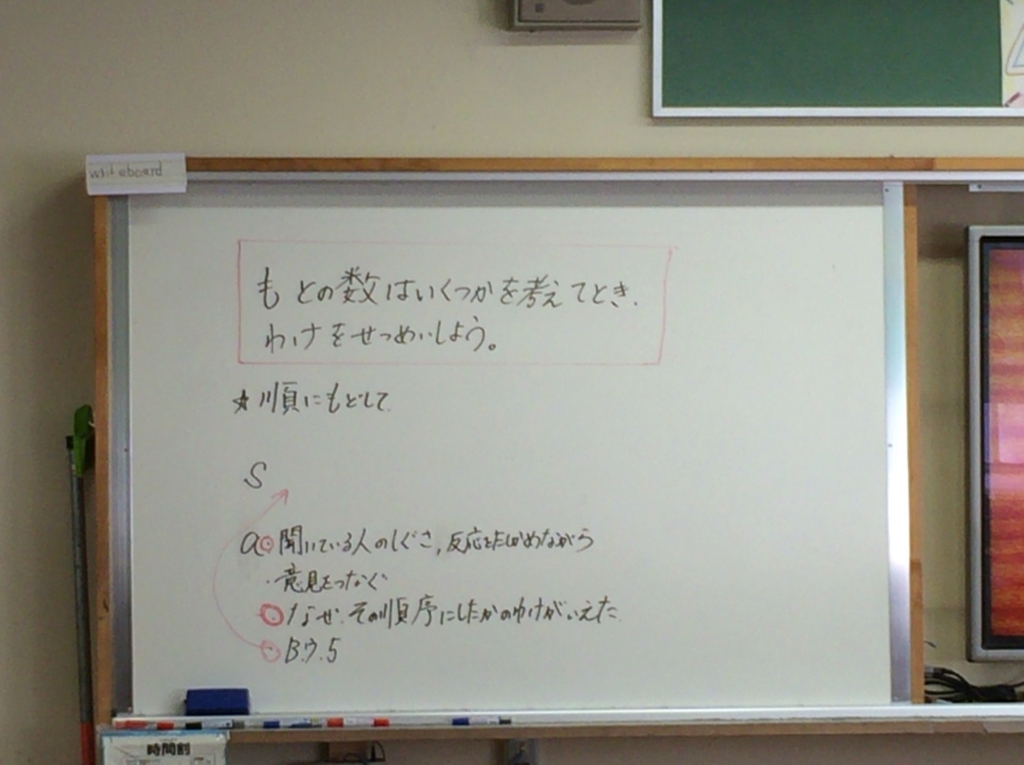 whiteboard
もとの数はいくつかを考えてとき、
わけをせつめいしよう。
☆順にもどして
S
a 聞いている人のしぐさ,反応をたしかめながら
・意見をつなぐ
なぜ、その順序にしたかのわけがいえた
B.ウ.5
時間割